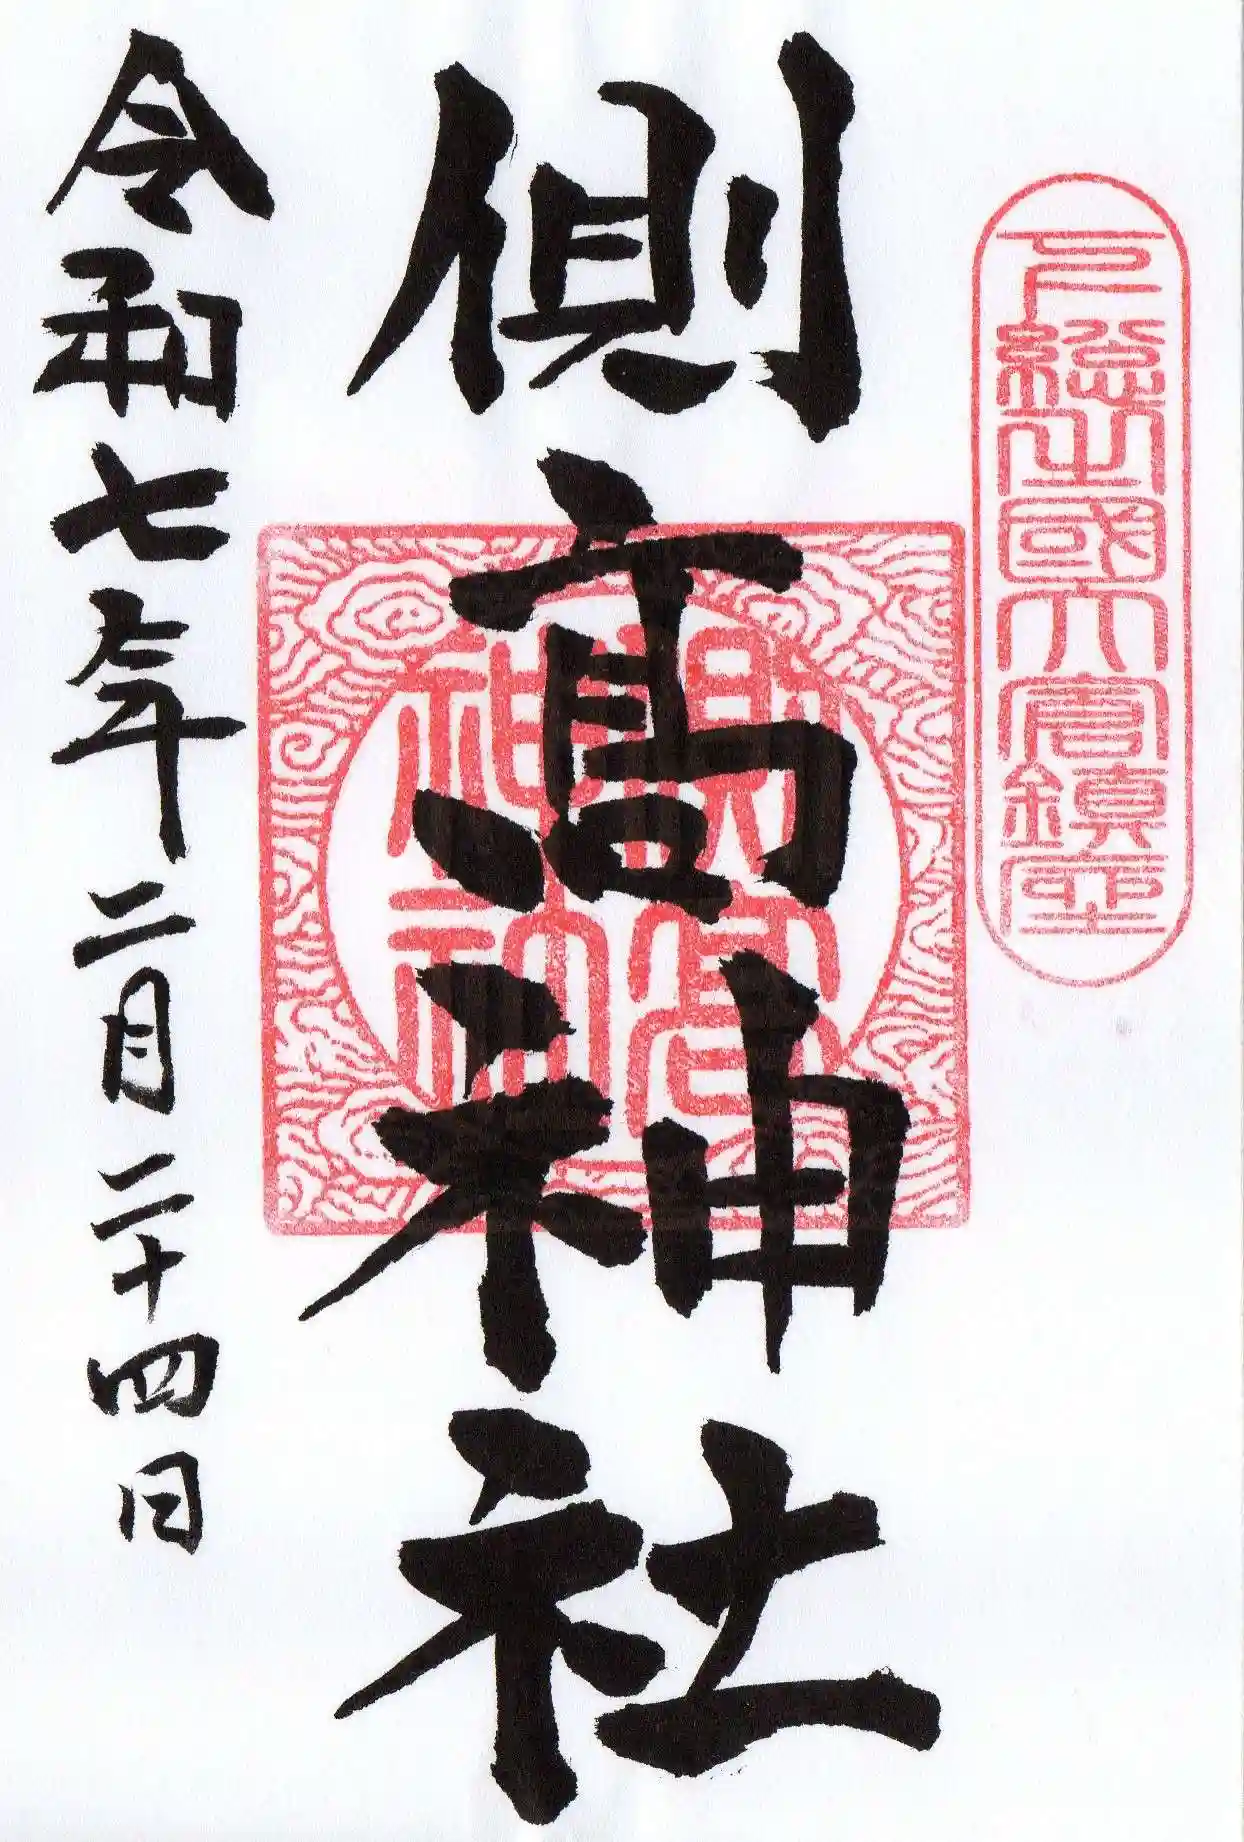 下総之國大倉鎮座
側髙神社
側高
神社
令和七年二月二十四日